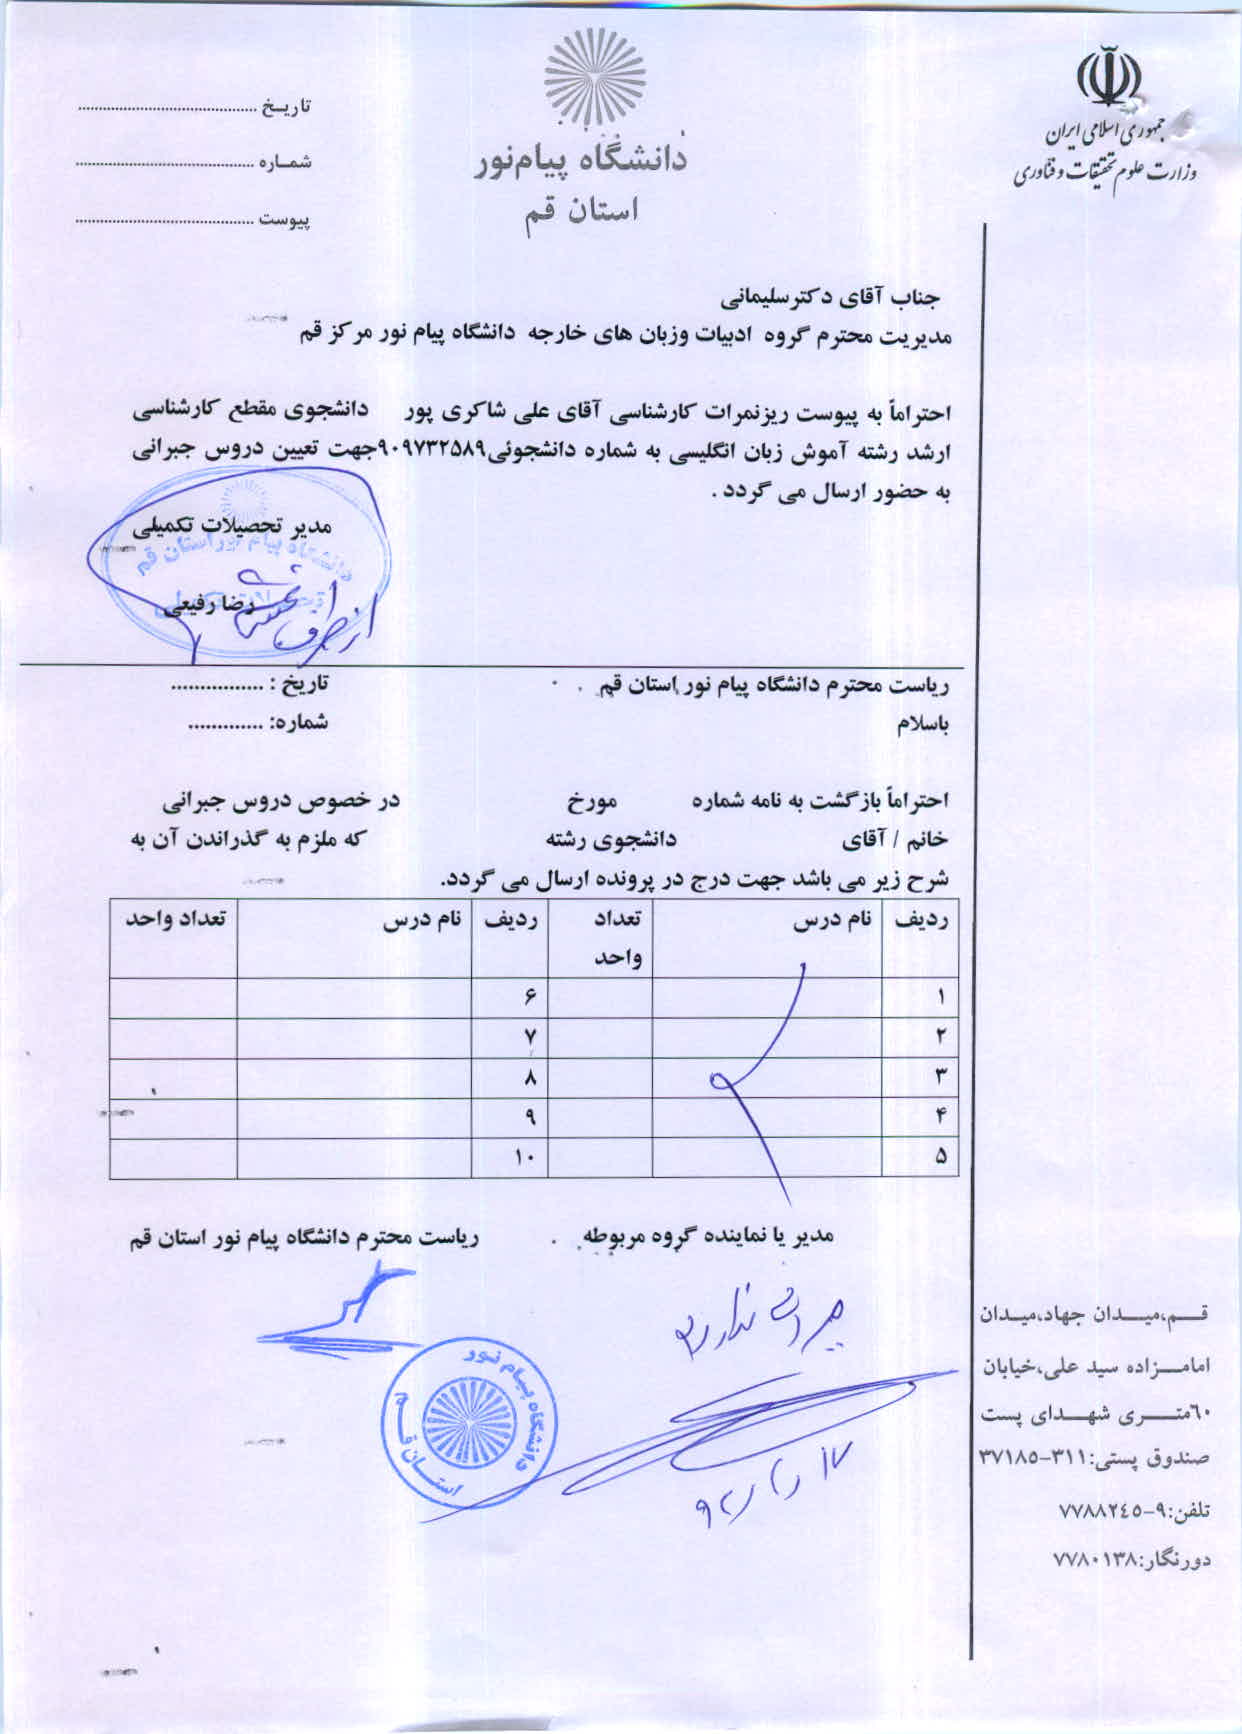 جمهوری اسلامی ایران
وزارت علوم تحقیقات و فناوری
دانشگاه پیام‌نور
استان قم
تاریـخ ......................................
شمـاره ......................................
پیوست ......................................
جناب آقای دکترسلیمانی
مدیریت محترم گروه ادبیات وزبان های خارجه دانشگاه پیام نور مرکز قم
احتراماً به پیوست ریزنمرات کارشناسی آقای علی شاکری پور دانشجوی مقطع کارشناسی
ارشد رشته آموش زبان انگلیسی به شماره دانشجوئی۹۰۹۷۳۲۵۸۹جهت تعیین دروس جبرانی
به حضور ارسال می گردد .
مدیر تحصیلات تکمیلی
دانشگاه پیام نور استان قم
رضا رفیعی
از طرف
ریاست محترم دانشگاه پیام نور استان قم
تاریخ : ................
باسلام
شماره: .............
احتراماً بازگشت به نامه شماره مورخ در خصوص دروس جبرانی
خانم / آقای دانشجوی رشته که ملزم به گذراندن آن به
شرح زیر می باشد جهت درج در پرونده ارسال می گردد.
ردیف نام درس تعداد واحد ردیف نام درس تعداد واحد
۱ ۶
۲ ۷
۳ ۸
۴ ۹
۵ ۱۰
مدیر یا نماینده گروه مربوطه .
ریاست محترم دانشگاه پیام نور استان قم
جبرانی ندارد
دانشگاه پیام نور
استـان قــم
قــم،میــدان جهاد،میـدان
امامـــزاده سید علی،خیابان
٦۰متــری شهــدای پست
صندوق پستی:۳۱۱-۳۷۱۸۵
تلفن:۹-۷۷۸۸۲٤۵
دورنگار:۷۷۸۰۱۳۸